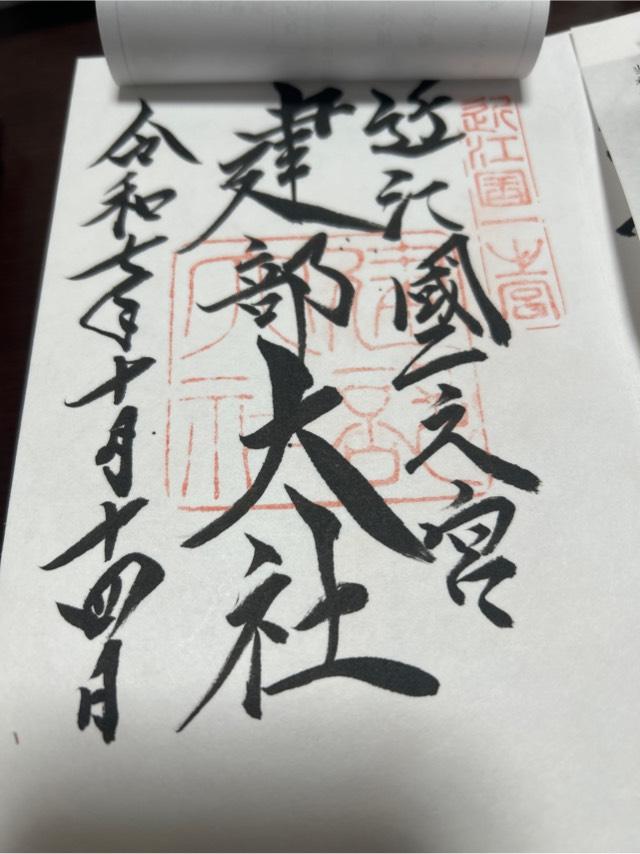 近江國一之宮
近江國一之宮
建部大社
建部大社
令和七年十月十四日